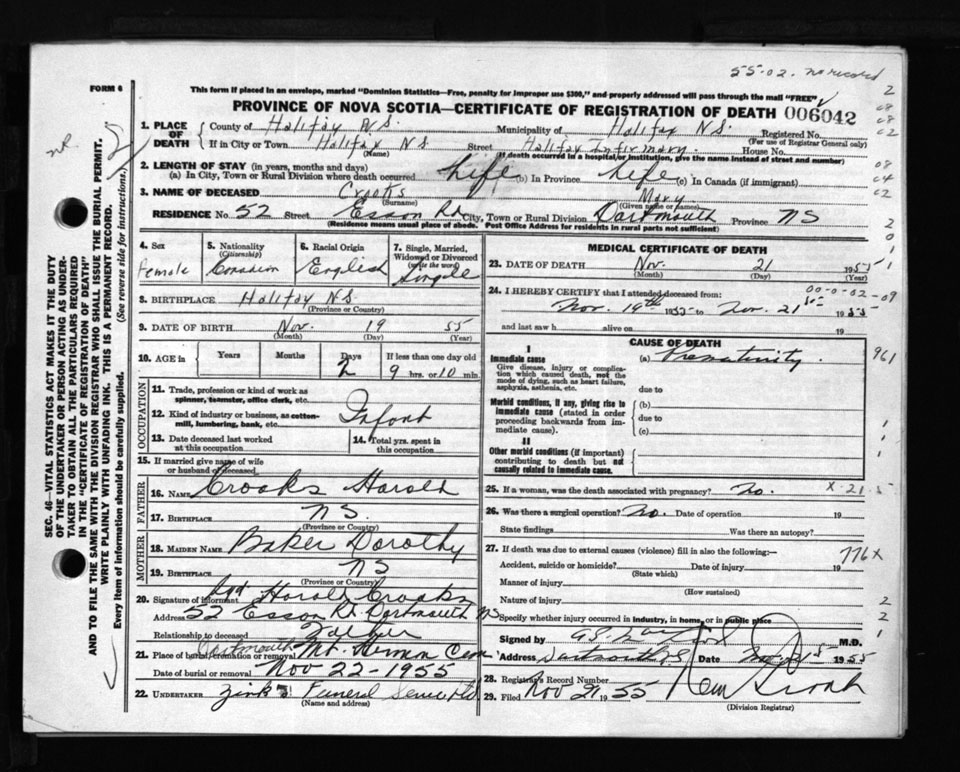 55-02. no record
FORM 6
This form if placed in an envelope, marked "Dominion Statistics—Free, penalty for improper use $300," and properly addressed will pass through the mail "FREE"
PROVINCE OF NOVA SCOTIA—CERTIFICATE OF REGISTRATION OF DEATH 006042
1. PLACE OF DEATH
County of Halifax N.S. Municipality of Halifax N.S. Registered No.
(For use of Registrar General only)
If in City or Town Halifax N.S. Street Halifax Infirmary House No.
(Name) (If death occurred in a hospital or institution, give the name instead of street and number)
2. LENGTH OF STAY (in years, months and days)
(a) In City, Town or Rural Division where death occurred Life (b) In Province Life (c) In Canada (if immigrant)
3. NAME OF DECEASED Crooks Mary
(Surname) (Given name or names)
RESIDENCE No. 52 Street Esson Rd City, Town or Rural Division Dartmouth Province NS
(Residence means usual place of abode. Post Office Address for residents in rural parts not sufficient)
4. Sex
Female
5. Nationality
(Citizenship)
Canadian
6. Racial Origin
English
7. Single, Married, Widowed or Divorced
(write the word)
Single
8. BIRTHPLACE Halifax N.S.
(Province or Country)
9. DATE OF BIRTH Nov. 19 55
(Month) (Day) (Year)
10. AGE in Years Months Days 2 If less than one day old
9 hrs. or 10 min.
OCCUPATION
11. Trade, profession or kind of work as spinner, teamster, office clerk, etc.
12. Kind of industry or business, as cotton-mill, lumbering, bank, etc. Infant
13. Date deceased last worked at this occupation
14. Total yrs. spent in this occupation
15. If married give name of wife or husband of deceased
FATHER
16. Name Crooks Harold
17. Birthplace N.S.
(Province or Country)
MOTHER
18. Maiden Name Baker Dorothy
19. Birthplace NS
(Province or Country)
20. Signature of informant Harold Crooks
Address 52 Esson Rd. Dartmouth NS
Relationship to deceased Father
21. Place of burial, cremation or removal Dartmouth Mt. Herman Cem
Date of burial or removal Nov 22-1955
22. UNDERTAKER Zink's Funeral Service Ltd.
(Name and address)
MEDICAL CERTIFICATE OF DEATH
23. DATE OF DEATH Nov. 21 1955
(Month) (Day) (Year)
00-0-02-09
24. I HEREBY CERTIFY that I attended deceased from:
Nov. 19th 1955 to Nov. 21 1955
and last saw h alive on 19
CAUSE OF DEATH
I
Immediate cause (a) Prematurity. 961
Give disease, injury or complication which caused death, not the mode of dying, such as heart failure, asphyxia, asthenia, etc.
due to
Morbid conditions, if any, giving rise to immediate cause (stated in order proceeding backwards from immediate cause).
(b)
due to
(c)
II
Other morbid conditions (if important) contributing to death but not causally related to immediate cause.
25. If a woman, was the death associated with pregnancy? No. X-21.5
26. Was there a surgical operation? No. Date of operation 19
State findings Was there an autopsy?
27. If death was due to external causes (violence) fill in also the following:—
776X
Accident, suicide or homicide? Date of injury 19
(State which)
Manner of injury
(How sustained)
Nature of injury
Specify whether injury occurred in industry, in home, or in public place
Signed by M.D.
Address Dartmouth N.S. Date 1955
28. Registrar's Record Number
29. Filed Nov 21 1955
(Division Registrar)
SEC. 46—VITAL STATISTICS ACT MAKES IT THE DUTY
OF THE UNDERTAKER OR PERSON ACTING AS UNDERTAKER TO OBTAIN ALL THE PARTICULARS REQUIRED
IN THE "CERTIFICATE OF REGISTRATION OF DEATH"
AND TO FILE THE SAME WITH THE DIVISION REGISTRAR WHO SHALL ISSUE THE BURIAL PERMIT.
WRITE PLAINLY WITH UNFADING INK. THIS IS A PERMANENT RECORD.
Every item of information should be carefully supplied. (See reverse side for instructions.)